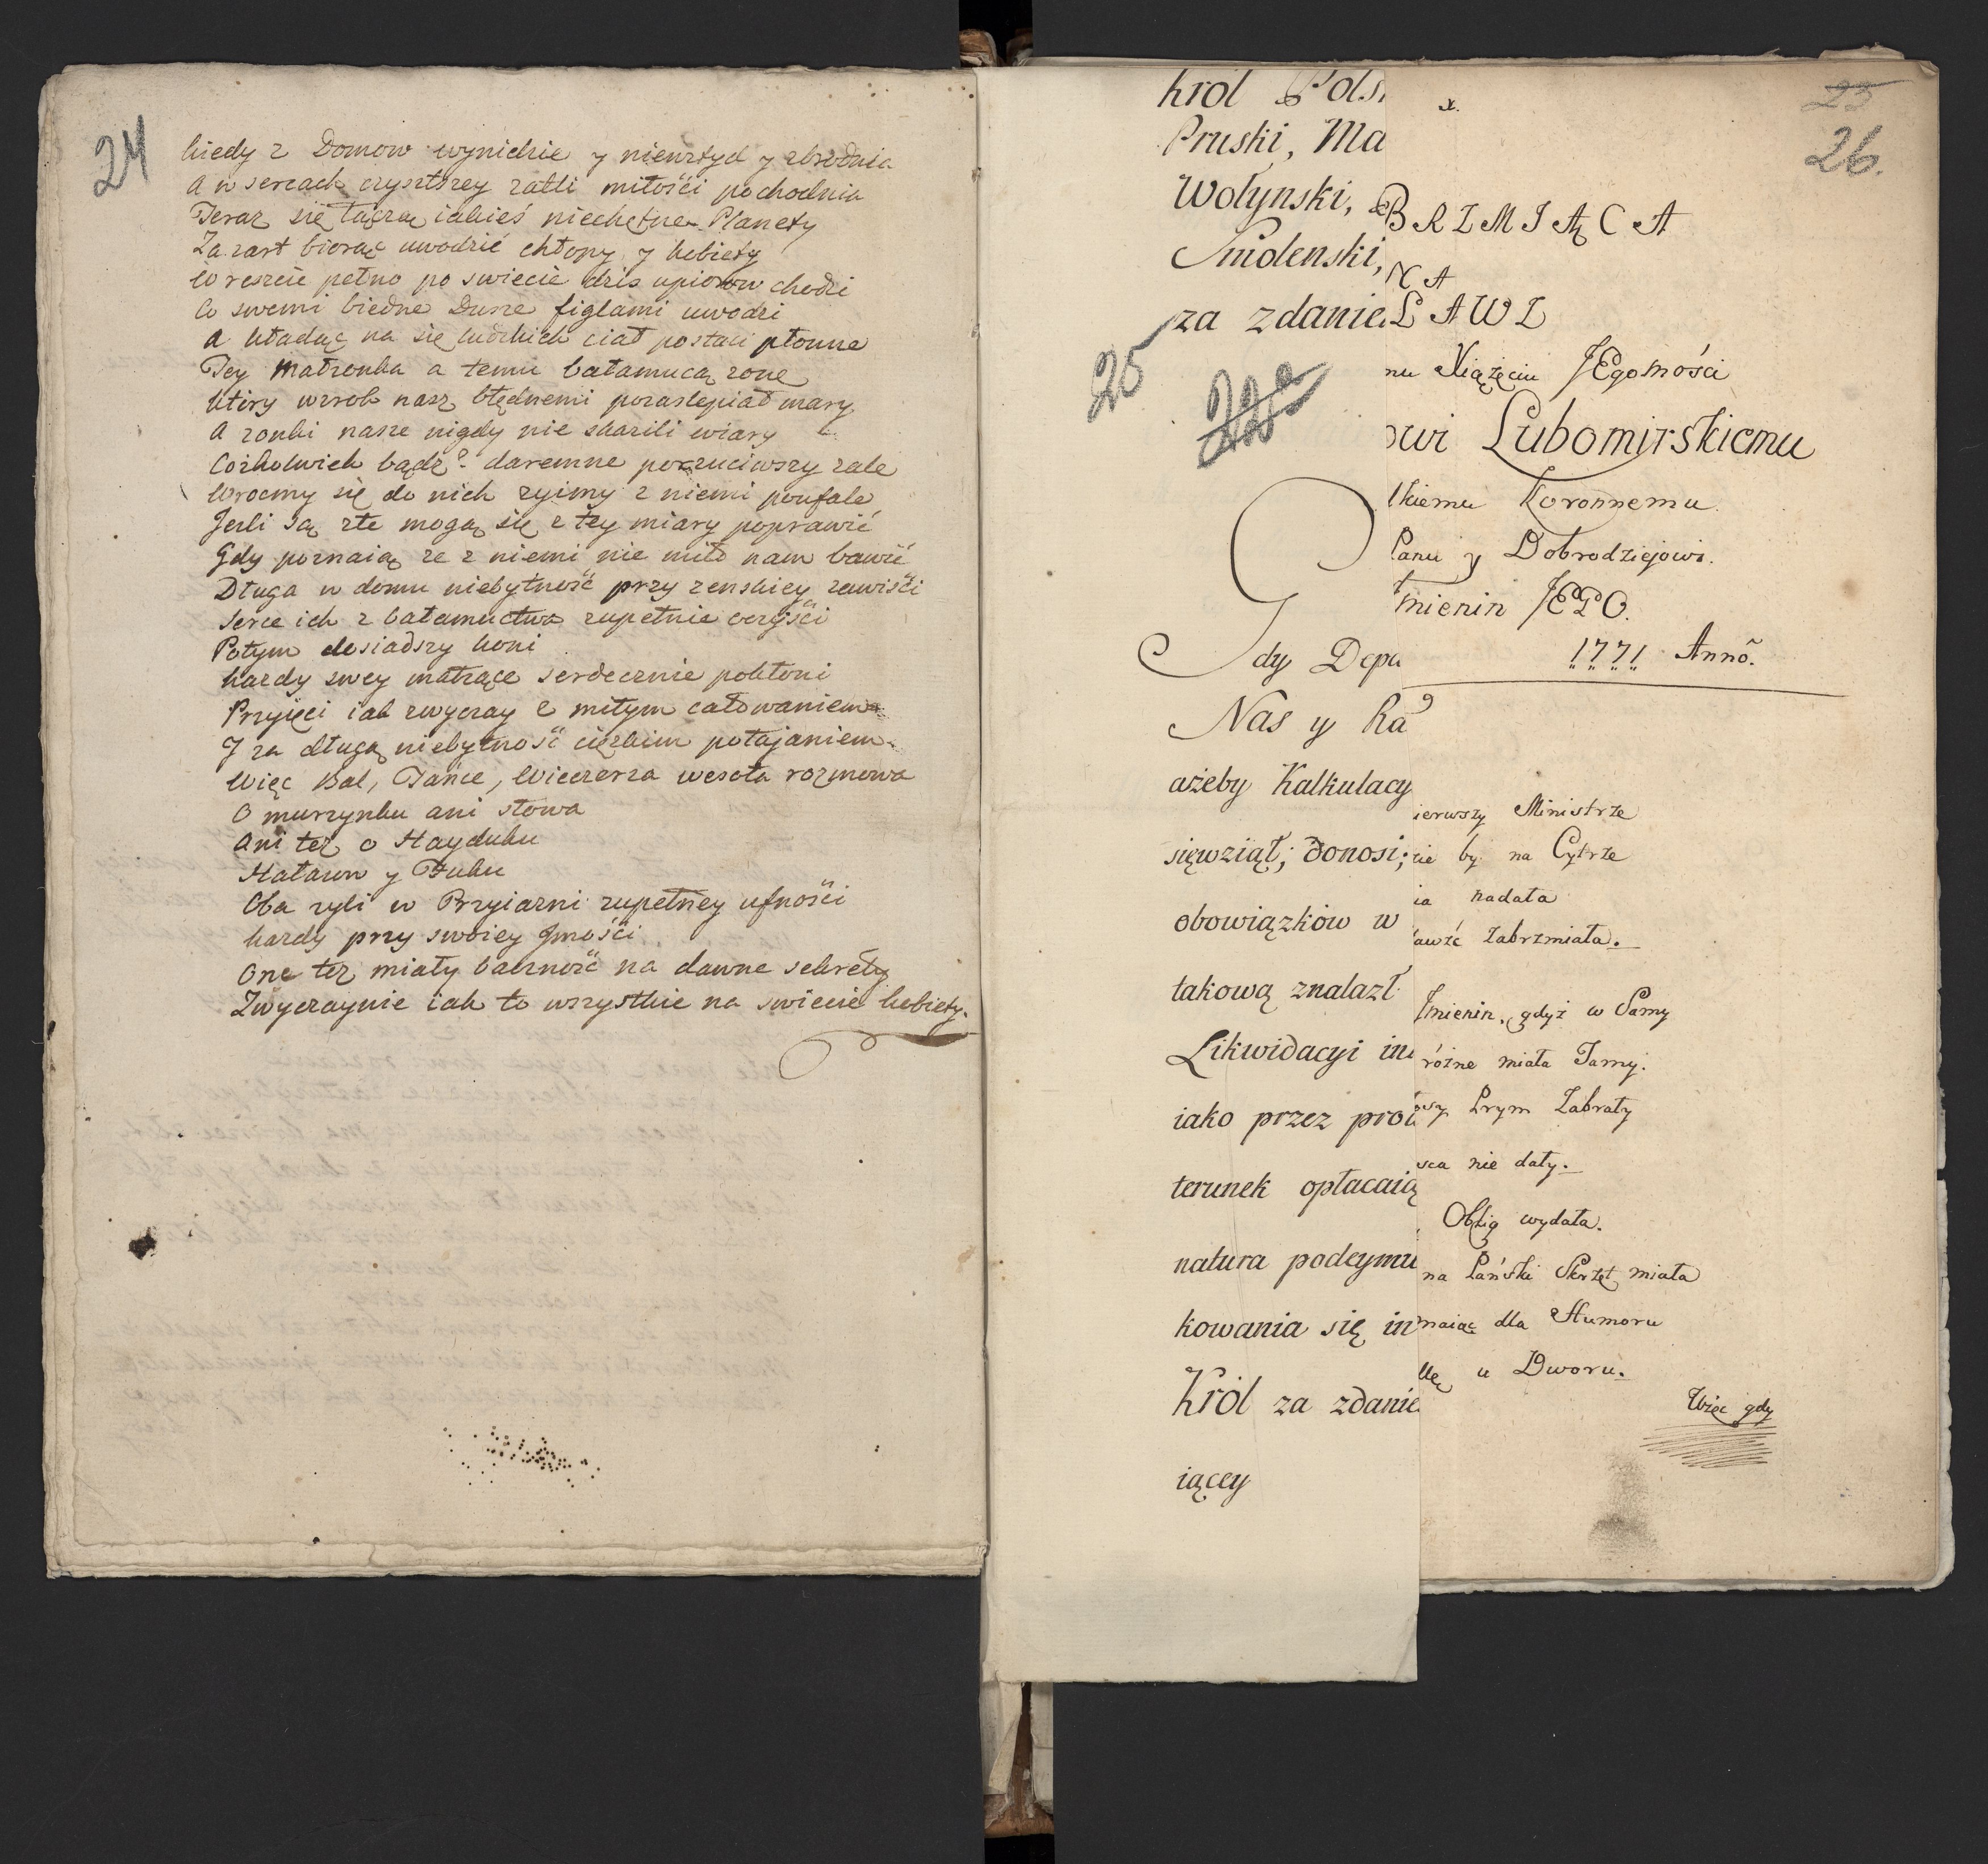 24
kiedy z Domow wynidzie y niewstyd y zbrodnia
A w sercach czysztszey zatli miłości pochodnia
Teraz się łączą iakieś niechętne Planety
Za zart biorąc uwodzić chłopy y kobiety
Wreszcie pełno po swiecie dzis upiorow chodzi
Co swemi biedne Dusze figlami uwodzi
A kładąc na się ludzkich ciał postaci płonne
Tey Małżonka a temu bałamucą zone
Ktory wzrok nasz błędnemi pozaslepiał mary
A zonki nasze nigdy nie skazili wiary
Cozkolwiek bądz daremne porzuciwszy zale
Wrocmy się do nich zyimy z niemi poufale
Jesli są złe mogą się z tey miary poprawić
Gdy poznaią ze z niemi nie miło nam bawić
Długa w domu niebytność przy zenskiey zawiści
Serce ich z bałamuctwa zupełnie oczyści
Potym dosiadszy koni
kazdy swey małżące serdecznie pokłoni
Przyięci iak zwyczay z miłym całowaniem
J za długą niebytność cięzkim połajaniem
Więc Bal, Tańce, Wieczerza wesoła rozmowa
O murzynku ani słowa
Ani tez o Hayduku
Hałasu y Fuku
Oba zyli w Przyiazni zupełney ufności
kazdy przy swoiey Jmości
One tez miały baczność na dawne sekrety
Zwyczaynie iak to wszystkie na swiecie kobiety.
25
Król Pols
Pruski, Ma
Wołynski,
Smolenski,
za zdanie
Gdy Depu
Nas y Ra
ażeby Kalkulacy
sięwziął; donosi;
obowiązków w
takową znalazł
Likwidacyi in
iako przez pro
terunek opłacaią
natura podeymu
kowania się in
Król za zdanie
iącey
25
26.
BRZMIĄCA
NA
ŁAWZ
nu Xiążęciu JEgomości
owi Lubomirskiemu
lkiemu Koronnemu.
Panu y Dobrodziejowi.
Jmienin JEGO.
1771 Annō.
ierwszy Ministrze
ie by na Cytrze
ia nadała
awże Zabrzmiała.
Jmienin, gdyż w Pamy
różne miała Tamy.
wszy Prym Zabrały
sca nie dały.
Oblig wydała.
na Pański Skrzęt miała
maiąc dla Humoru
llę u Dworu.
Więc gdy